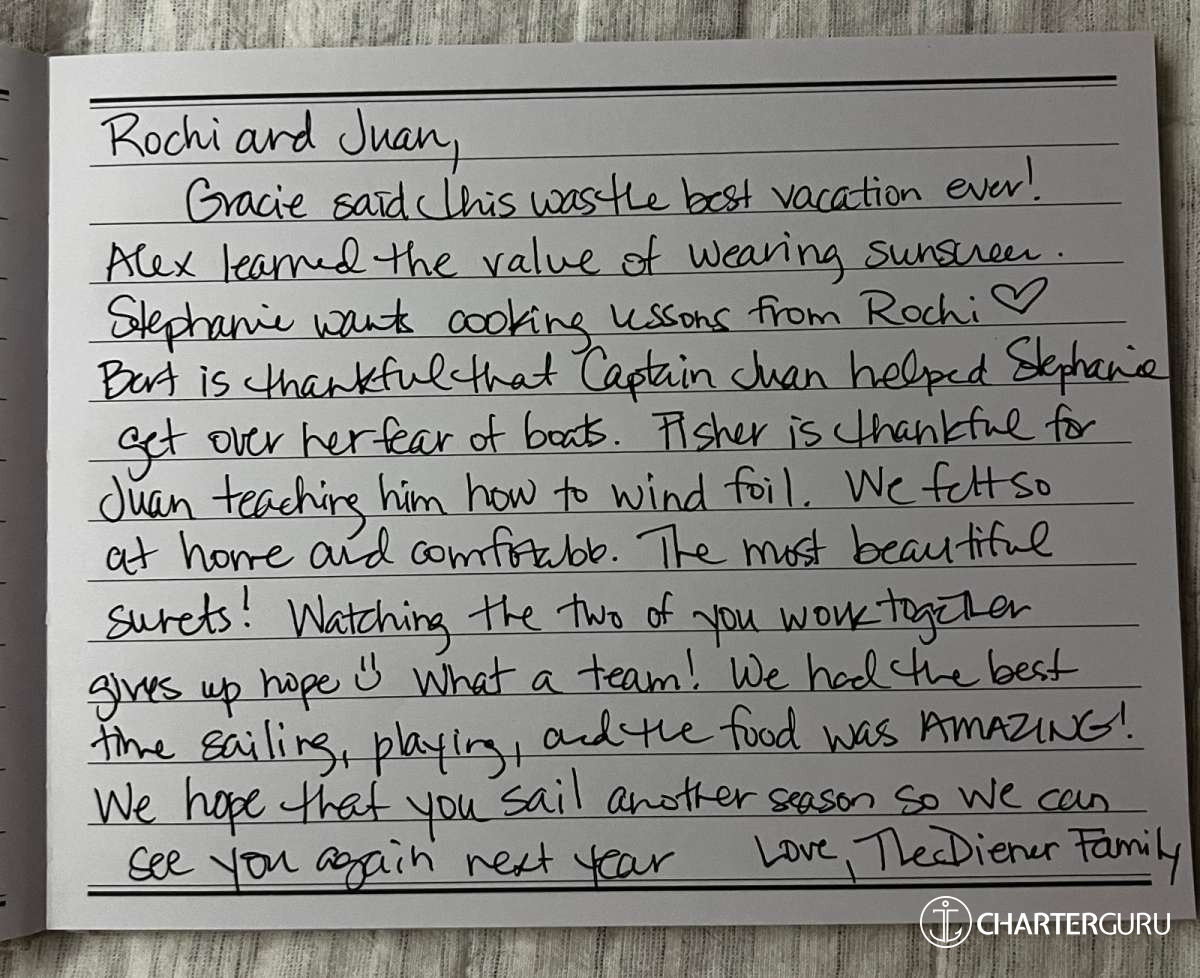 Rochi and Juan,
Gracie said this was the best vacation ever!
Alex learned the value of wearing sunscreen.
Stephanie wants cooking lessons from Rochi ♡
Bert is thankful that Captain Juan helped Stephanie
get over her fear of boats. Fisher is thankful for
Juan teaching him how to wind foil. We felt so
at home and comfortable. The most beautiful
sunsets! Watching the two of you work together
gives up hope :) What a team! We had the best
time sailing, playing, and the food was AMAZING!
We hope that you sail another season so we can
see you again next year Love, The Diener Family
CHARTERGURU